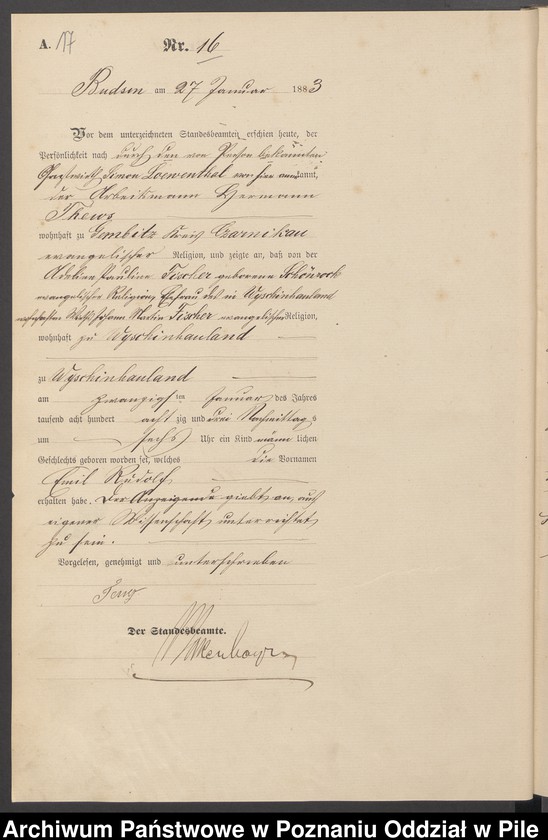 A. 17 Nr. 16
Budsin am 27 Januar 1883
Vor dem unterzeichneten Standesbeamten erschien heute, der
Persönlichkeit nach durch den von Person bekannten
Gastwirth Simon Loewenthal von hier anerkannt,
der Arbeitsmann Hermann
Thews
wohnhaft zu Gembitz Kreis Czarnikau
evangelischer Religion, und zeigte an, daß von der
Pauline Fischer geborene Schönrock
evangelischer Religion, Ehefrau des in Wyschinhauland
wohnhaften Wirths Johann Martin Fischer evangelischer Religion,
wohnhaft zu Wyschinhauland
zu Wyschinhauland
am zwanzigsten Januar des Jahres
tausend acht hundert achtzig und drei Nachmittags
um sechs Uhr ein Kind männlichen
Geschlechts geboren worden sei, welches die Vornamen
Emil Rudolf
erhalten habe. Der Anzeigende giebt an, aus
eigener Wissenschaft unterrichtet
zu sein.
Vorgelesen, genehmigt und unterschrieben
Der Standesbeamte.
Archiwum Państwowe w Poznaniu Oddział w Pile